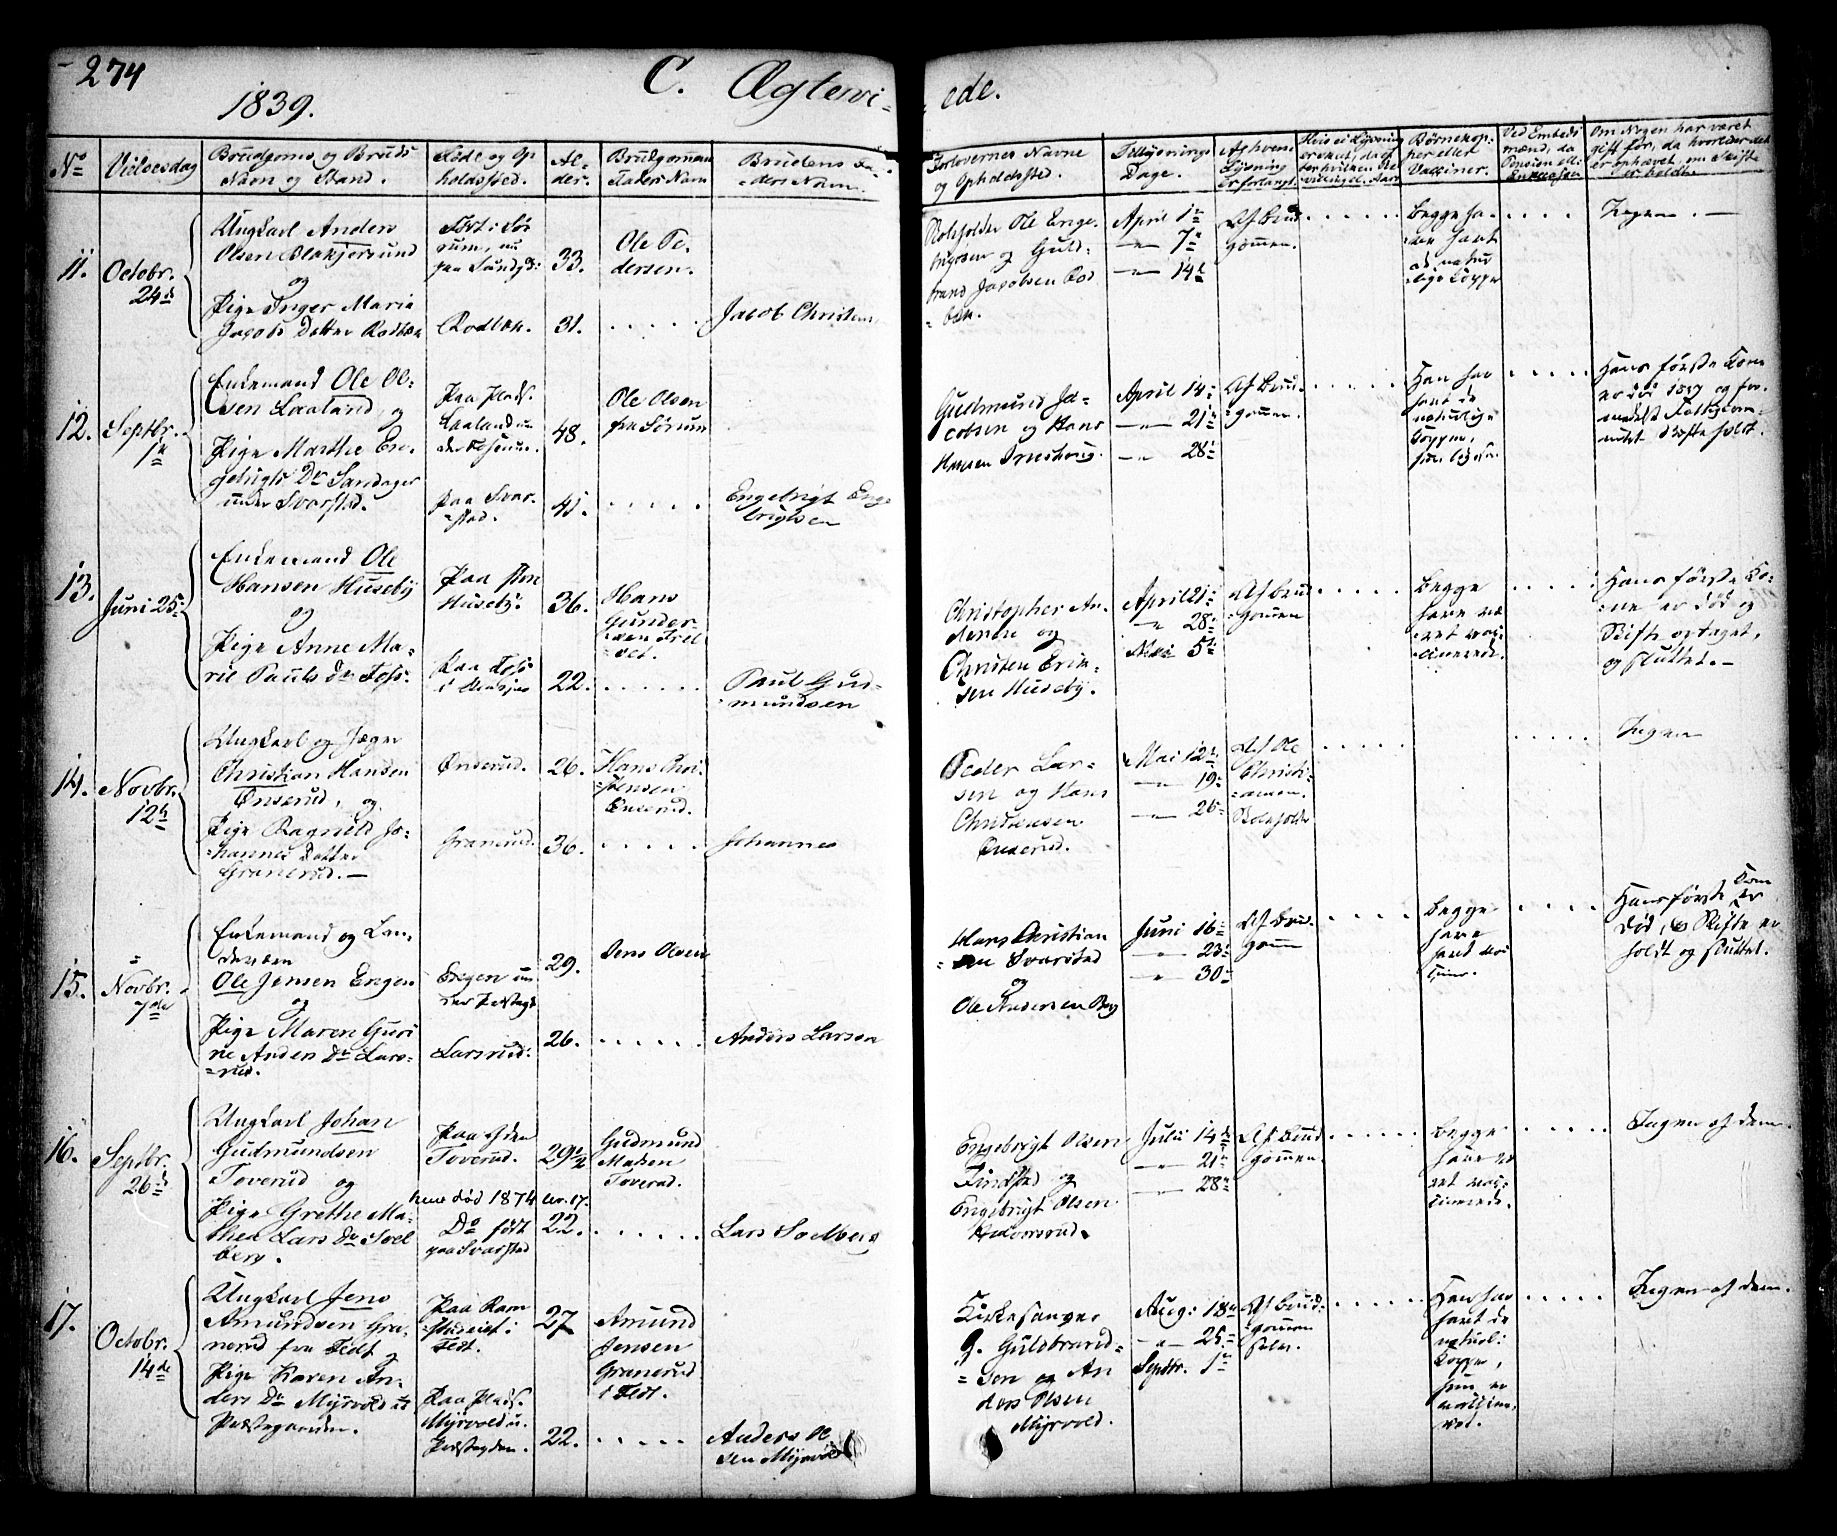 274
1839.
C. Ægtevi- ede.
No
Vielsesdag
Brudgoms og Bruds
Navn og Stand.
Føde og Op
holdssted.
Al-
der.
Brudgommens
Faders Navn
Brudens Fa-
ders Navn.
Forlovernes Navne
og Opholdssted.
Tillysnings
Dage.
Af hvem
Lysning
er forlangt.
Børnekop-
per eller
Vacciner.
Ved Embeds
mænd, da
Pension ell:
Om Nogen har været
gift før, da hvorledes det
er ophævet, om Skifte
er holdt.
11.
Octobr.
24de
Ungkarl Anders
Olsen Blakjersund
og
Pige Inger Maria
Jacobs Datter Rodbæk
Født i Sø-
rum, nu
paa
Rodbæk.
33.
31.
Ole Pe-
dersen.
Jacob Christens.
Ole Enge-
brigtsen og Guld-
brand Jacobsen Rod
bæk.
April 1ste
— 7de
— 14de
Af Brud
gommen.
Begge ha-
ve havt
de natur
lige Kopper
Ingen. —
12.
Septbr.
1ste
Enkemand Ole Ol-
sen Laaland, og
Pige Marthe En-
gebrigts Dr Sandager
under Svarstad.
Paa Plads.
Laaland un-
der
paa Svar-
stad.
48.
41.
Ole Olsen
fra Sørum
Engebrigt Enge
brigtsen
Gudmund Ja-
cobsen og Hans
Hansen
April 14de
— 21de
— 28de
Af Brud-
gommen.
Han har
havt de
naturlige
Kopper,
Hans første Kone
er død 1837 og
Skifte holdt.
13.
Juni 25.
Enkemand Ole
Hansen Huseby
og
Pige Anne Ma-
rie Pauls Dr Foss.
Paa
Huseby.
Paa Foss
i
36.
22.
Hans
Gunder-
sen
Paul Gud-
mundsen
Christopher An-
dersen og
Christen Erik-
sen Huseby.
April 21de
— 28de
Mai 5te
Af Brud-
gommen
Begge
have væ-
ret vac-
cinerede.
Hans første Ko-
ne er død og
Skifte optaget,
og sluttet. —
14.
Novbr.
12te
Ungkarl og Jæger
Christian Hansen
Ønserud, og
Pige Ragnild Jo-
hannes Datter
Granerud. —
Ønserud.
Granerud.
26.
36.
Hans Chri-
stensen
Ønserud.
Johannes
Peder Lar-
sen og Hans
Christensen
Ønserud.
Mai 12te
— 19de
— 26de
Af Ole
Christi-
ansen.
Ingen
15.
Novbr.
7de
Enkemand og Lan-
deværn
Ole Jensen Engen
og
Pige Maren Guri
ne Anders Dr Lars-
rud.
Engen un
der Præstegd
Larsrud.
29.
26.
Jens Olsen
Anders Larsen
Hans Christian
sen Svarstad
og
Ole Andersen Berg
Juni 16de
— 23de
— 30de
Af Brud-
gommen
Begge
have
havt vac-
ciner.
Hans første Kone er
død, og Skifte er
holdt og sluttet.
16.
Septbr.
26de
Ungkarl Johan
Gudmundsen
Toverud og
Pige Grethe Ma-
thea Lars Dr Soel
berg.
Paa
Toverud.
hene død 1874 No. 17.
Do født
paa Svarstad
29 1/2
22.
Gudmund
Madsen
Toverud.
Lars Soelberg
Engebrigt Olsen
Findstad og
Engebrigt Olsen
Halvorsrud.
Juli 14de
— 21de
— 28de
Af Brud
gommen.
Begge
have væ
ret vac-
cinerede.
Ingen af dem.
17.
Octobr.
14de
Ungkarl Jens
Amundsen Gra-
nerud fra Fedt og
Pige Karen An-
ders Dr Myrvold u:
Præstegaarden.
Paa Ram
i
Fedt.
Paa Plads.
Myrvold u.
Præstegden.
27
22.
Amund
Jensen
Granerud
i Fedt.
Anders Ol
sen Myrvold
Kirkesanger
G. Guldbrand-
sen og An
ders Olsen
Myrvold.
Aug: 18de
— 25de
Septbr. 1ste
Af Brud-
gommen
selv.
Han har
havt de
naturl:
Kopper,
hun er
vaccine-
ret.
Ingen af dem.